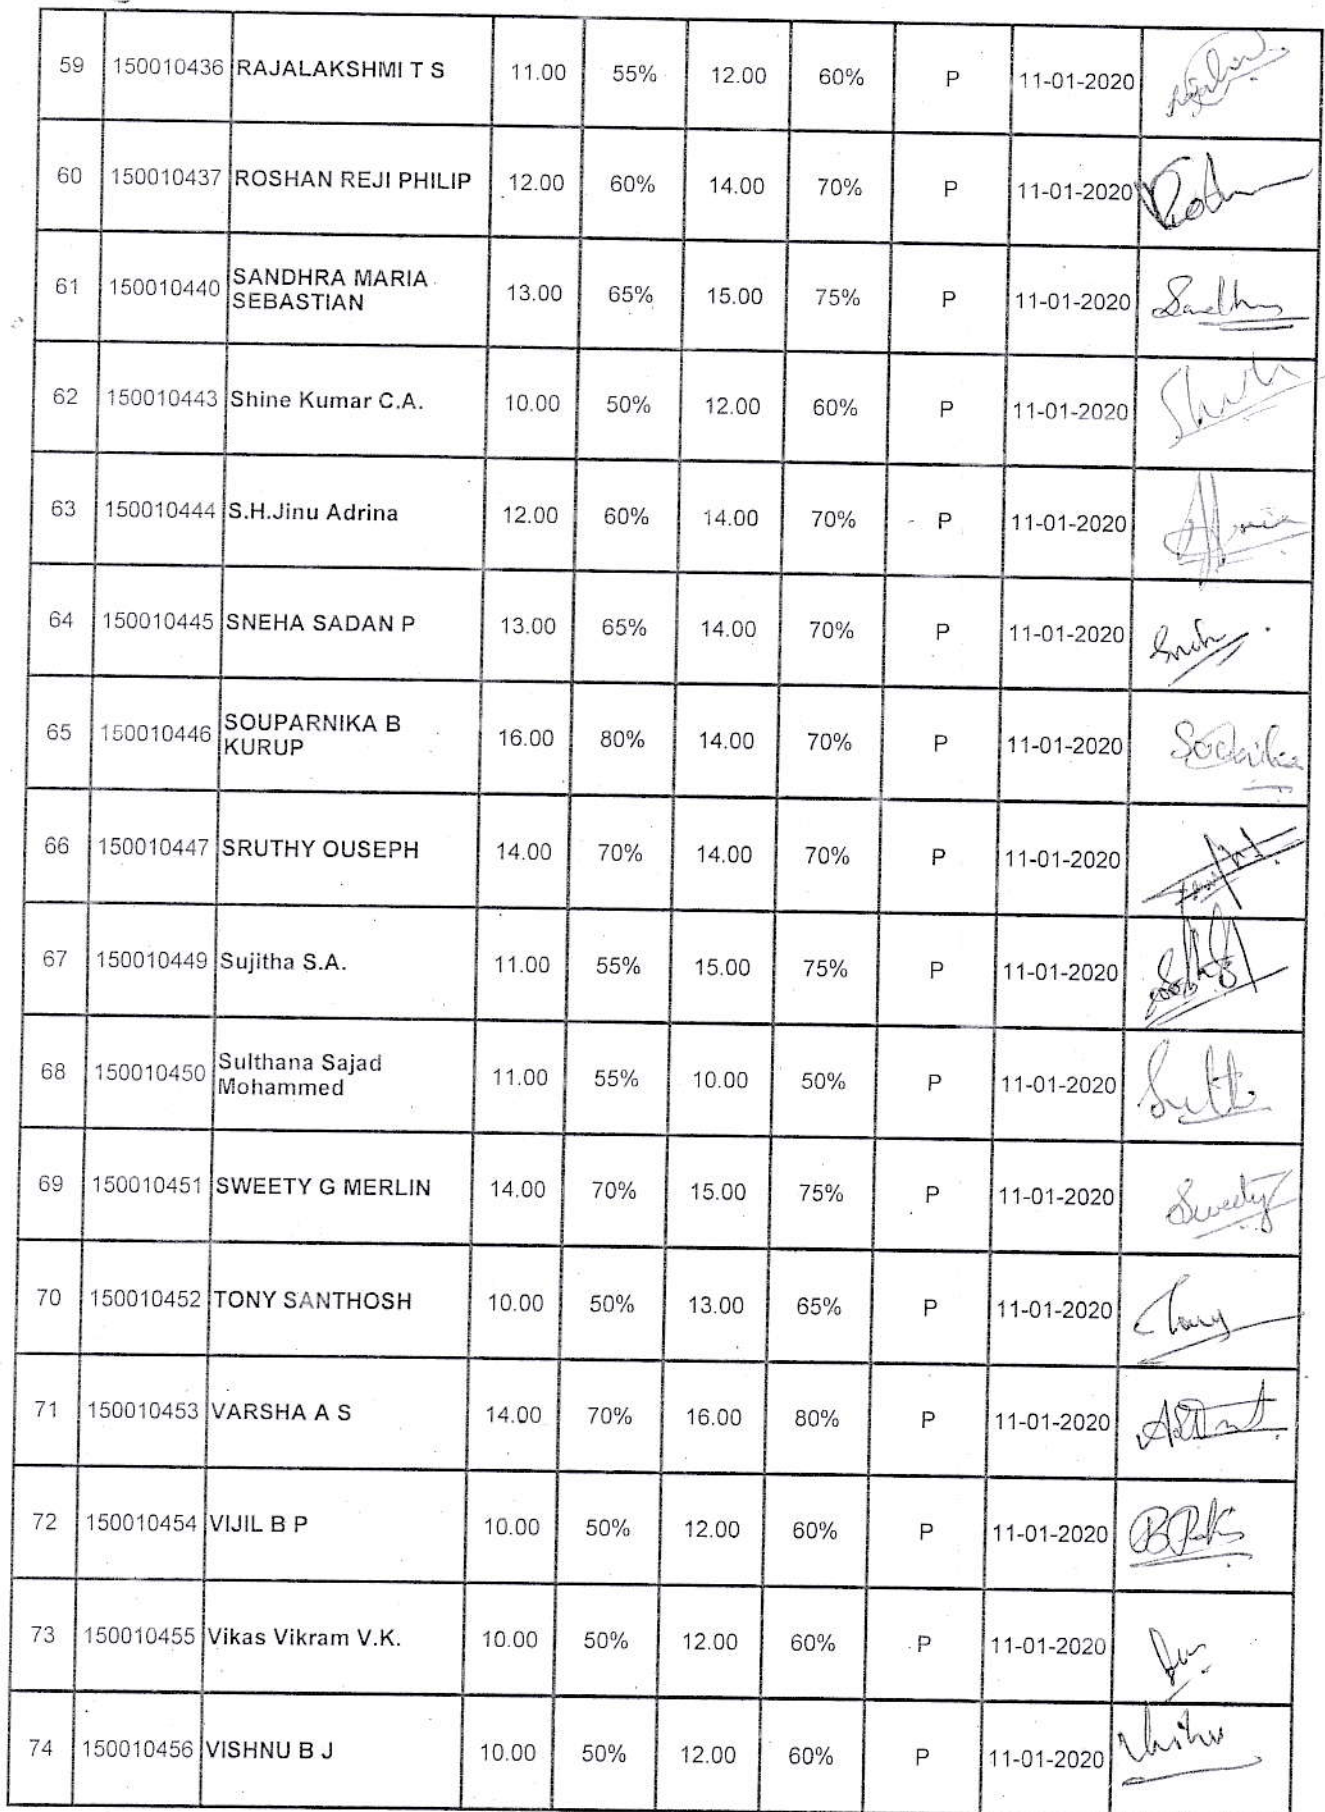 59 150010436 RAJALAKSHMI T S 11.00 55% 12.00 60% P 11-01-2020
60 150010437 ROSHAN REJI PHILIP 12.00 60% 14.00 70% P 11-01-2020
61 150010440 SANDHRA MARIA SEBASTIAN 13.00 65% 15.00 75% P 11-01-2020 Sandhra
62 150010443 Shine Kumar C.A. 10.00 50% 12.00 60% P 11-01-2020
63 150010444 S.H.Jinu Adrina 12.00 60% 14.00 70% P 11-01-2020
64 150010445 SNEHA SADAN P 13.00 65% 14.00 70% P 11-01-2020
65 150010446 SOUPARNIKA B KURUP 16.00 80% 14.00 70% P 11-01-2020
66 150010447 SRUTHY OUSEPH 14.00 70% 14.00 70% P 11-01-2020
67 150010449 Sujitha S.A. 11.00 55% 15.00 75% P 11-01-2020
68 150010450 Sulthana Sajad Mohammed 11.00 55% 10.00 50% P 11-01-2020
69 150010451 SWEETY G MERLIN 14.00 70% 15.00 75% P 11-01-2020 Sweety
70 150010452 TONY SANTHOSH 10.00 50% 13.00 65% P 11-01-2020 Tony
71 150010453 VARSHA A S 14.00 70% 16.00 80% P 11-01-2020
72 150010454 VIJIL B P 10.00 50% 12.00 60% P 11-01-2020
73 150010455 Vikas Vikram V.K. 10.00 50% 12.00 60% P 11-01-2020
74 150010456 VISHNU B J 10.00 50% 12.00 60% P 11-01-2020 Vishnu